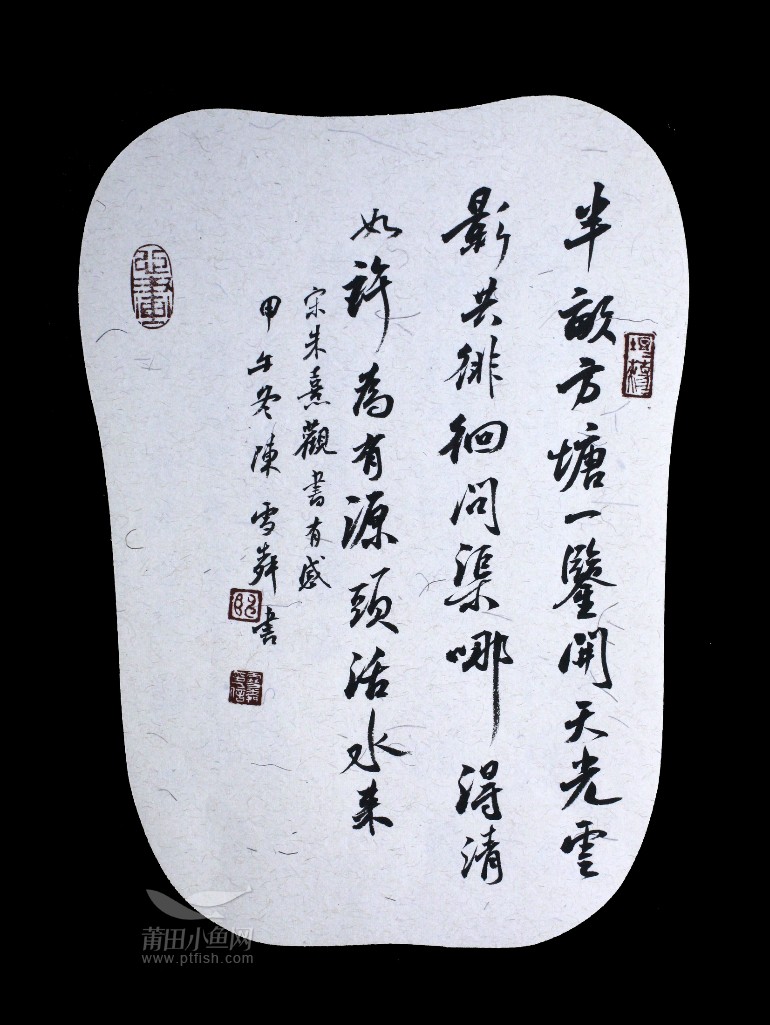 半畝方塘一鑒開天光雲
影共徘徊問渠哪得清
如許為有源頭活水来
宋朱熹觀書有感
甲午冬陳雪舜書
莆田小鱼网
www.ptfish.com